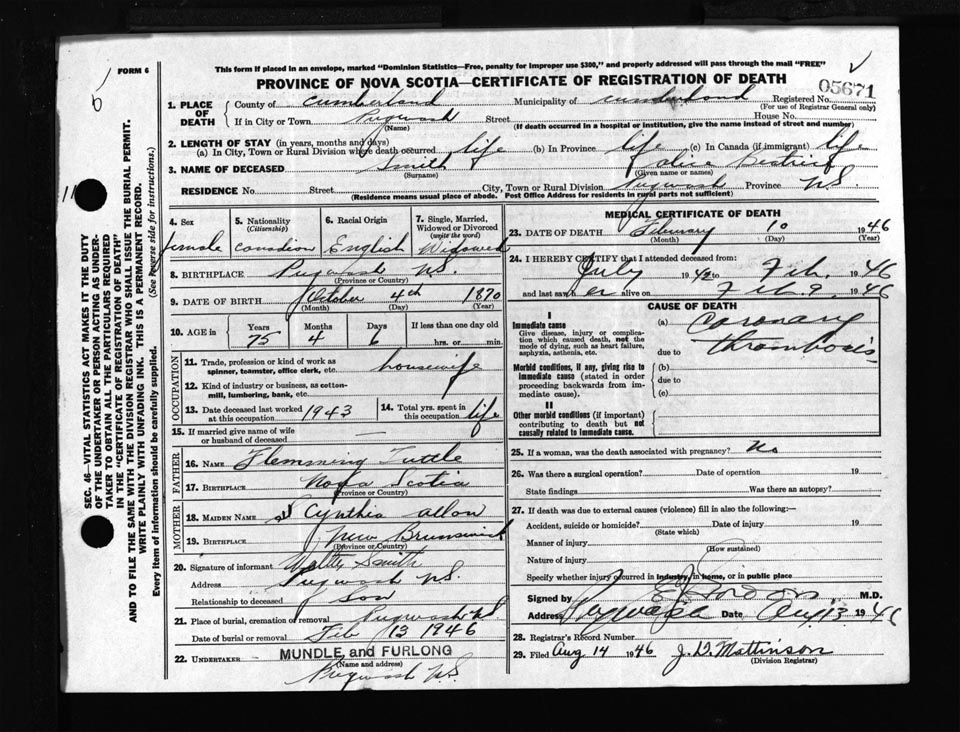 FORM 6
This form if placed in an envelope, marked "Dominion Statistics—Free, penalty for improper use $300," and properly addressed will pass through the mail "FREE"
PROVINCE OF NOVA SCOTIA—CERTIFICATE OF REGISTRATION OF DEATH
05671
1. PLACE OF DEATH County of Cumberland Municipality of Cumberland Registered No.
(For use of Registrar General only)
If in City or Town Pugwash Street House No.
(Name) (If death occurred in a hospital or institution, give the name instead of street and number)
2. LENGTH OF STAY (in years, months and days)
(a) In City, Town or Rural Division where death occurred life (b) In Province life (c) In Canada (if immigrant) life
3. NAME OF DECEASED Smith Alice
(Surname) (Given name or names)
RESIDENCE No. Street City, Town or Rural Division Pugwash Province N.S.
(Residence means usual place of abode. Post Office Address for residents in rural parts not sufficient)
4. Sex 5. Nationality (Citizenship) 6. Racial Origin 7. Single, Married, Widowed or Divorced (write the word)
female Canadian English Widowed
8. BIRTHPLACE Pugwash N.S.
(Province or Country)
9. DATE OF BIRTH October 4th 1870
(Month) (Day) (Year)
10. AGE in Years Months Days If less than one day old
75 4 6 hrs. or min.
OCCUPATION
11. Trade, profession or kind of work as spinner, teamster, office clerk, etc. housewife
12. Kind of industry or business, as cotton-mill, lumbering, bank, etc.
13. Date deceased last worked at this occupation 1943 14. Total yrs. spent in this occupation life
15. If married give name of wife or husband of deceased —
FATHER
16. NAME Flemming Tuttle
17. BIRTHPLACE Nova Scotia
(Province or Country)
MOTHER
18. MAIDEN NAME Cynthia Allan
19. BIRTHPLACE New Brunswick
(Province or Country)
20. Signature of informant Smith
Address Pugwash N.S.
Relationship to deceased Son
21. Place of burial, cremation or removal Pugwash N.S.
Date of burial or removal Feb 13 1946
22. UNDERTAKER MUNDLE and FURLONG
(Name and address)
Pugwash N.S.
MEDICAL CERTIFICATE OF DEATH
23. DATE OF DEATH February 10 1946
(Month) (Day) (Year)
24. I HEREBY CERTIFY that I attended deceased from:
July 1942 to Feb. 1946
and last saw h er alive on Feb 9 1946
CAUSE OF DEATH
I
Immediate cause
Give disease, injury or complication which caused death, not the mode of dying, such as heart failure, asphyxia, asthenia, etc.
(a) Coronary
due to thrombosis
Morbid conditions, if any, giving rise to immediate cause (stated in order proceeding backwards from immediate cause).
(b)
due to
(c)
II
Other morbid conditions (if important) contributing to death but not causally related to immediate cause.
25. If a woman, was the death associated with pregnancy? No
26. Was there a surgical operation? Date of operation 19
State findings Was there an autopsy?
27. If death was due to external causes (violence) fill in also the following:—
Accident, suicide or homicide? Date of injury 19
(State which)
Manner of injury
(How sustained)
Nature of injury
Specify whether injury occurred in industry, in home, or in public place
Signed by M.D.
Address Pugwash Date Aug. 13 1946
28. Registrar's Record Number
29. Filed Aug 14 1946 J. D. Mattinson
(Division Registrar)
SEC. 46—VITAL STATISTICS ACT MAKES IT THE DUTY
OF THE UNDERTAKER OR PERSON ACTING AS UNDER-
TAKER TO OBTAIN ALL THE PARTICULARS REQUIRED
IN THE "CERTIFICATE OF REGISTRATION OF DEATH"
AND TO FILE THE SAME WITH THE DIVISION REGISTRAR WHO SHALL ISSUE THE BURIAL PERMIT.
WRITE PLAINLY WITH UNFADING INK. THIS IS A PERMANENT RECORD.
Every item of information should be carefully supplied. (See reverse side for instructions.)